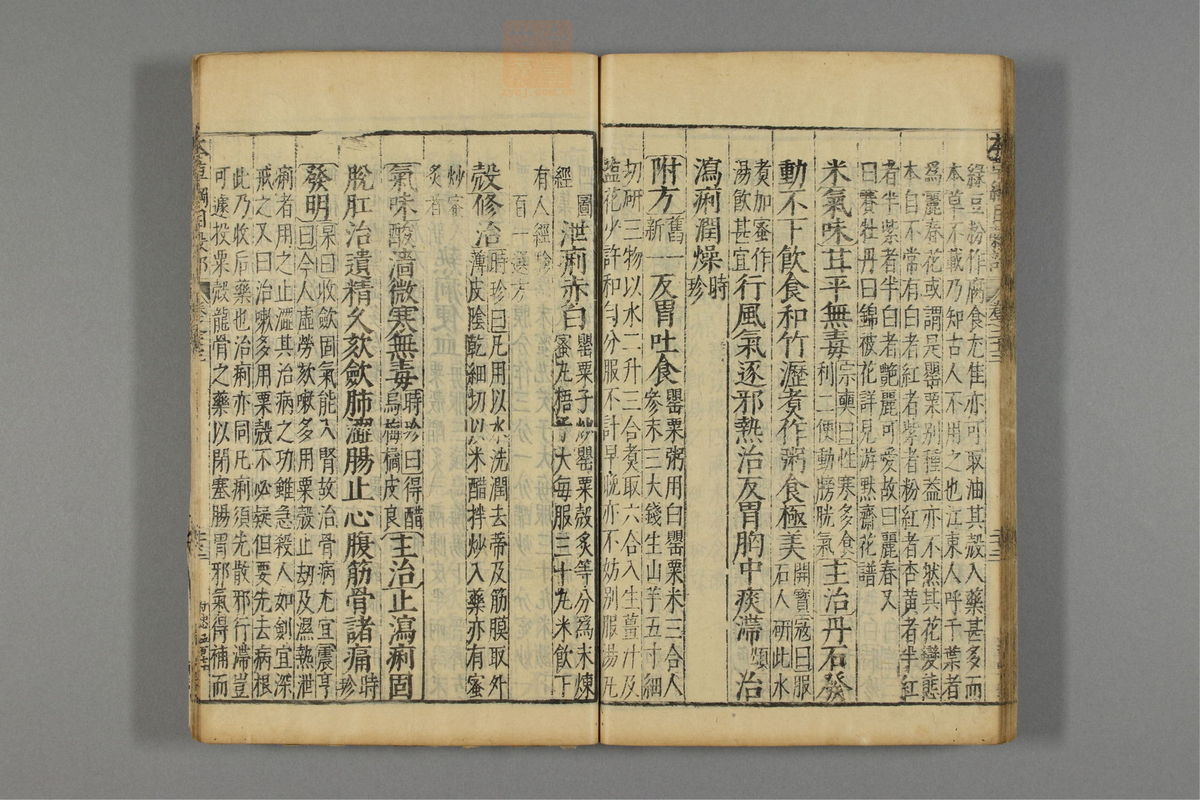 綠豆粉作腐食尤佳亦可取油其殼入藥甚多而
本草不載乃知古人不用之也江東人呼千葉者
爲麗春花或謂是罌粟別種蓋亦不然其花變態
本自不常有白者紅者紫者粉紅者杏黃者半紅
者半紫者半白者艶麗可愛故曰麗春又
曰賽牡丹曰錦被花詳見游默齋花譜
米氣味甘平無毒宗奭曰性寒多食
利二便動膀胱氣主治丹石發
動不下飲食和竹瀝煑作粥食極美開寶寇曰服
石人研此水
煑加蜜作
湯飲甚宜行風氣逐邪熱治反胃胸中痰滯頌治
瀉痢潤燥時
珍
附方舊一
新一反胃吐食罌粟粥用白罌粟米三合人
參末三大錢生山芋五寸細
切研三物以水二升三合煑取六合入生薑汁及
鹽花少許和勻分服不計早晚亦不妨別服湯丸
圖
經泄痢赤白罌粟子炒罌粟殼炙等分爲末煉
蜜丸梧子大每服三十丸米飲下
有人經驗
百一選方
殼修治時珍曰凡用以水洗潤去蒂及筋膜取外
薄皮陰乾細切以米醋拌炒入藥亦有蜜
炒蜜
炙者
氣味酸澀微寒無毒時珍曰得醋
烏梅橘皮良主治止瀉痢固
脫肛治遺精久欬斂肺澀腸止心腹筋骨諸痛時
珍
發明杲曰收斂固氣能入腎故治骨病尤宜震亨
曰今人虛勞欬嗽多用粟殼止劫及濕熱泄
痢者用之止澀其治病之功雖急殺人如劍宜深
戒之又曰治嗽多用粟殼不必疑但要先去病根
此乃收后藥也治痢亦同凡痢須先散邪行滯豈
可遽投粟殼龍骨之藥以閉塞腸胃邪氣得補而